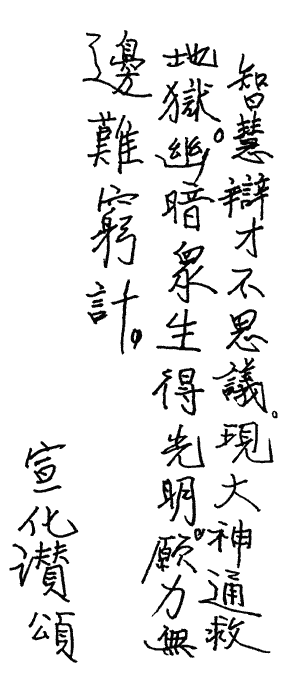 智慧辯才不思議。現大神通救
地獄。幽暗眾生得光明。願力無
邊難窮計。
宣化讃頌